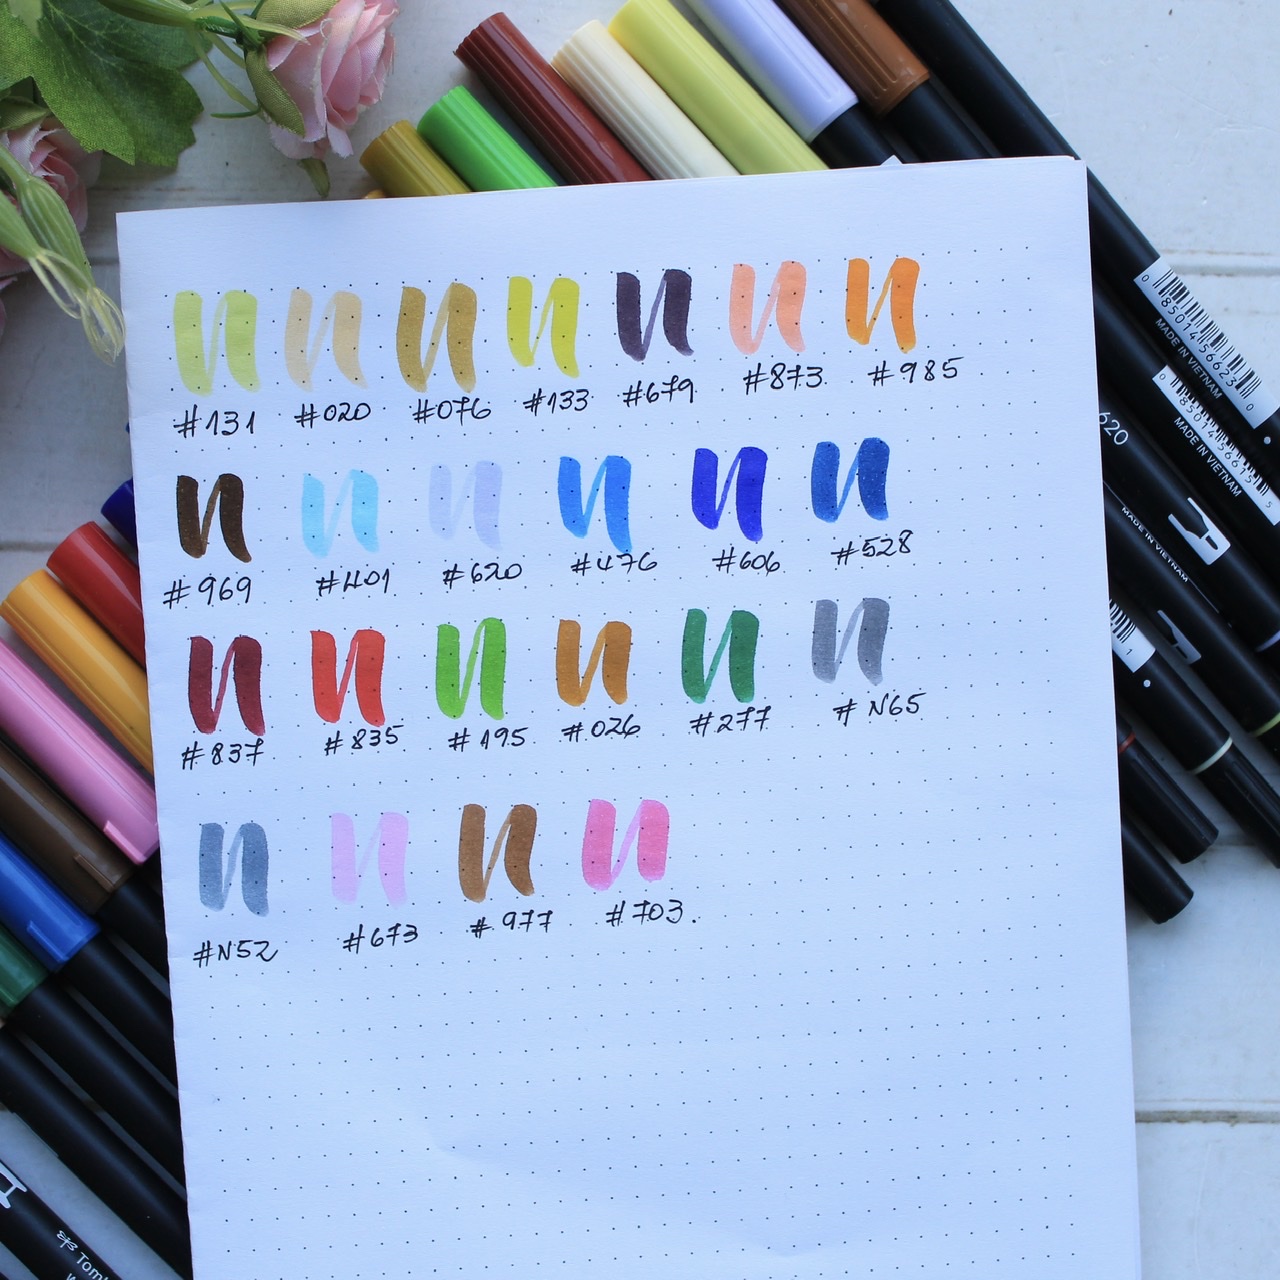 #131 #020 #076 #133 #679 #873 #985
#969 #401 #620 #476 #606 #528
#837 #835 #195 #026 #277 #N65
#N52 #673 #977 #703.
MADE IN VIETNAM
MADE IN VIETNAM
620
MADE IN VIETNAM